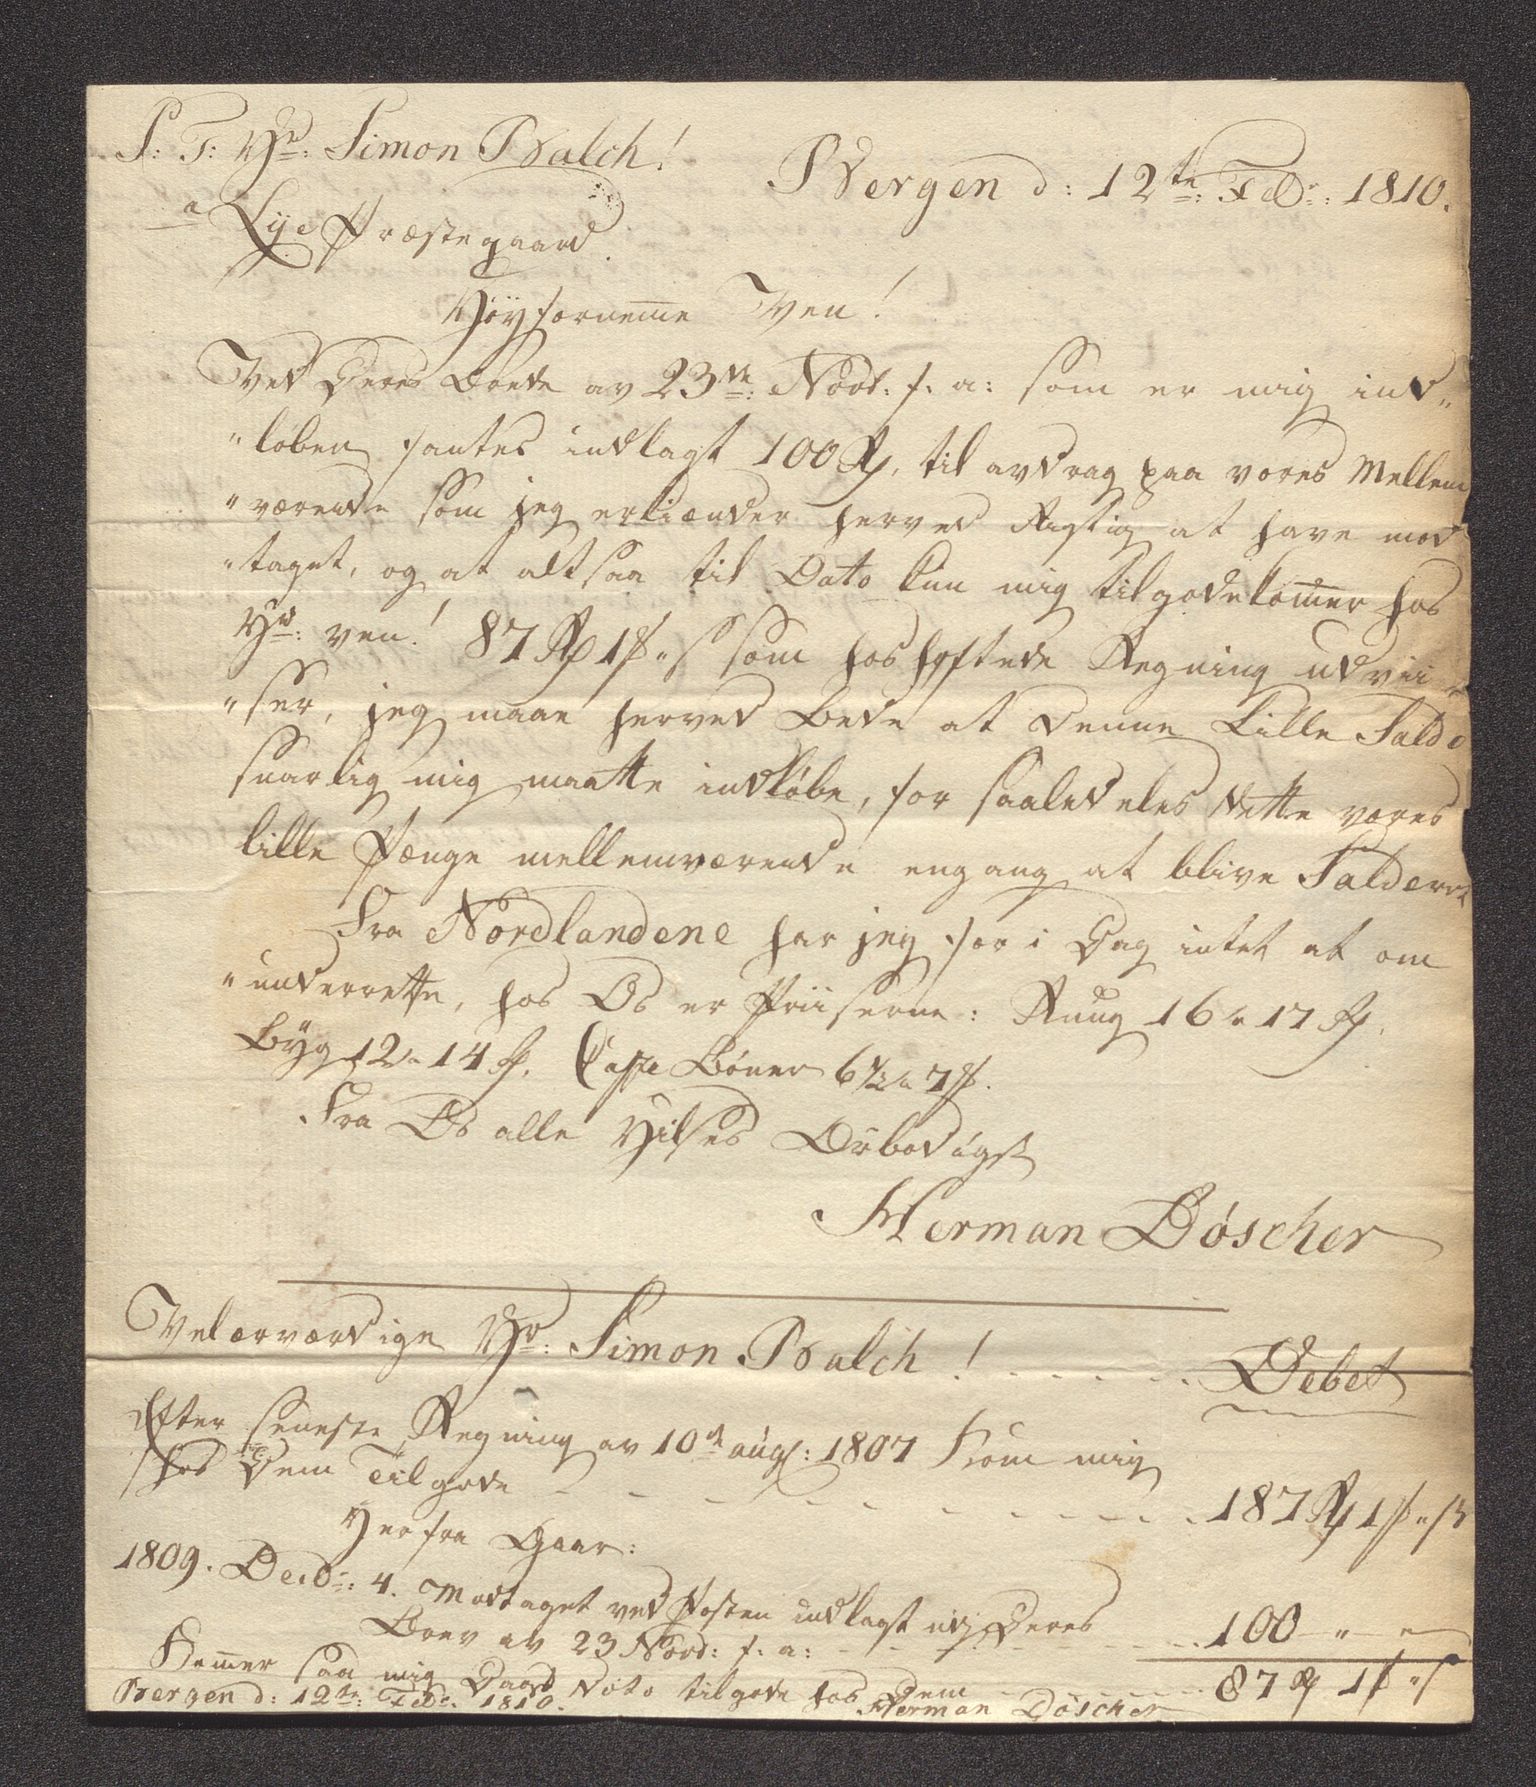 S: T: Hr: Simon Balch!
Bergen d: 12te: Febr: 1810.
a Lye Præstegaard.
Høyfornemme Ven!
Ved Deres Brev av 23de: Novbr: f: a: som er mig ind„
„løben santes indlagt 100 Rd, til avdrag paa vores Mellem
„værende som jeg erkiænder herved Rigtig at have mod
„taget, og at altsaa til Dato kun mig tilgodekommer hos
Hr: ven! 87 Rd 1 # „ s som hoshæftede Regning udvii
„ser, jeg maae herved bede at denne Lille Saldo
snarlig mig maatte indløbe, for saaledeles dette vores
lille Penge mellemværende engang at blive Salderet
Fra Nordlandene har jeg for i Dag intet at om
„underrette, hos Os er Priiserne: Ruug 16 a 17 Rd.
Byg 12 a 14 Rd. Caffe Bøner 6½ a 7 #.
Fra Os alle Hilses Ærbødigst
Herman Döscher
Velærværdige Hr: Simon Balch! . . . . . Debet
Efter seneste Regning av 10de augs: 1807 kom mig
hos Dem Tilgode - - - - - - - - - - - 187 Rd 1 # „ s
Herfra Gaar:
1809. Decbr: 4. Modtaget ved Posten indlagt udj Deres
Brev av 23 Novb: f: a: - - - - - - 100 „ „
Kommer saa mig Dags Dato tilgode hos Dem - - - - - 87 Rd 1 # „ s
Bergen d: 12te: Febr: 1810.
Herman Döscher